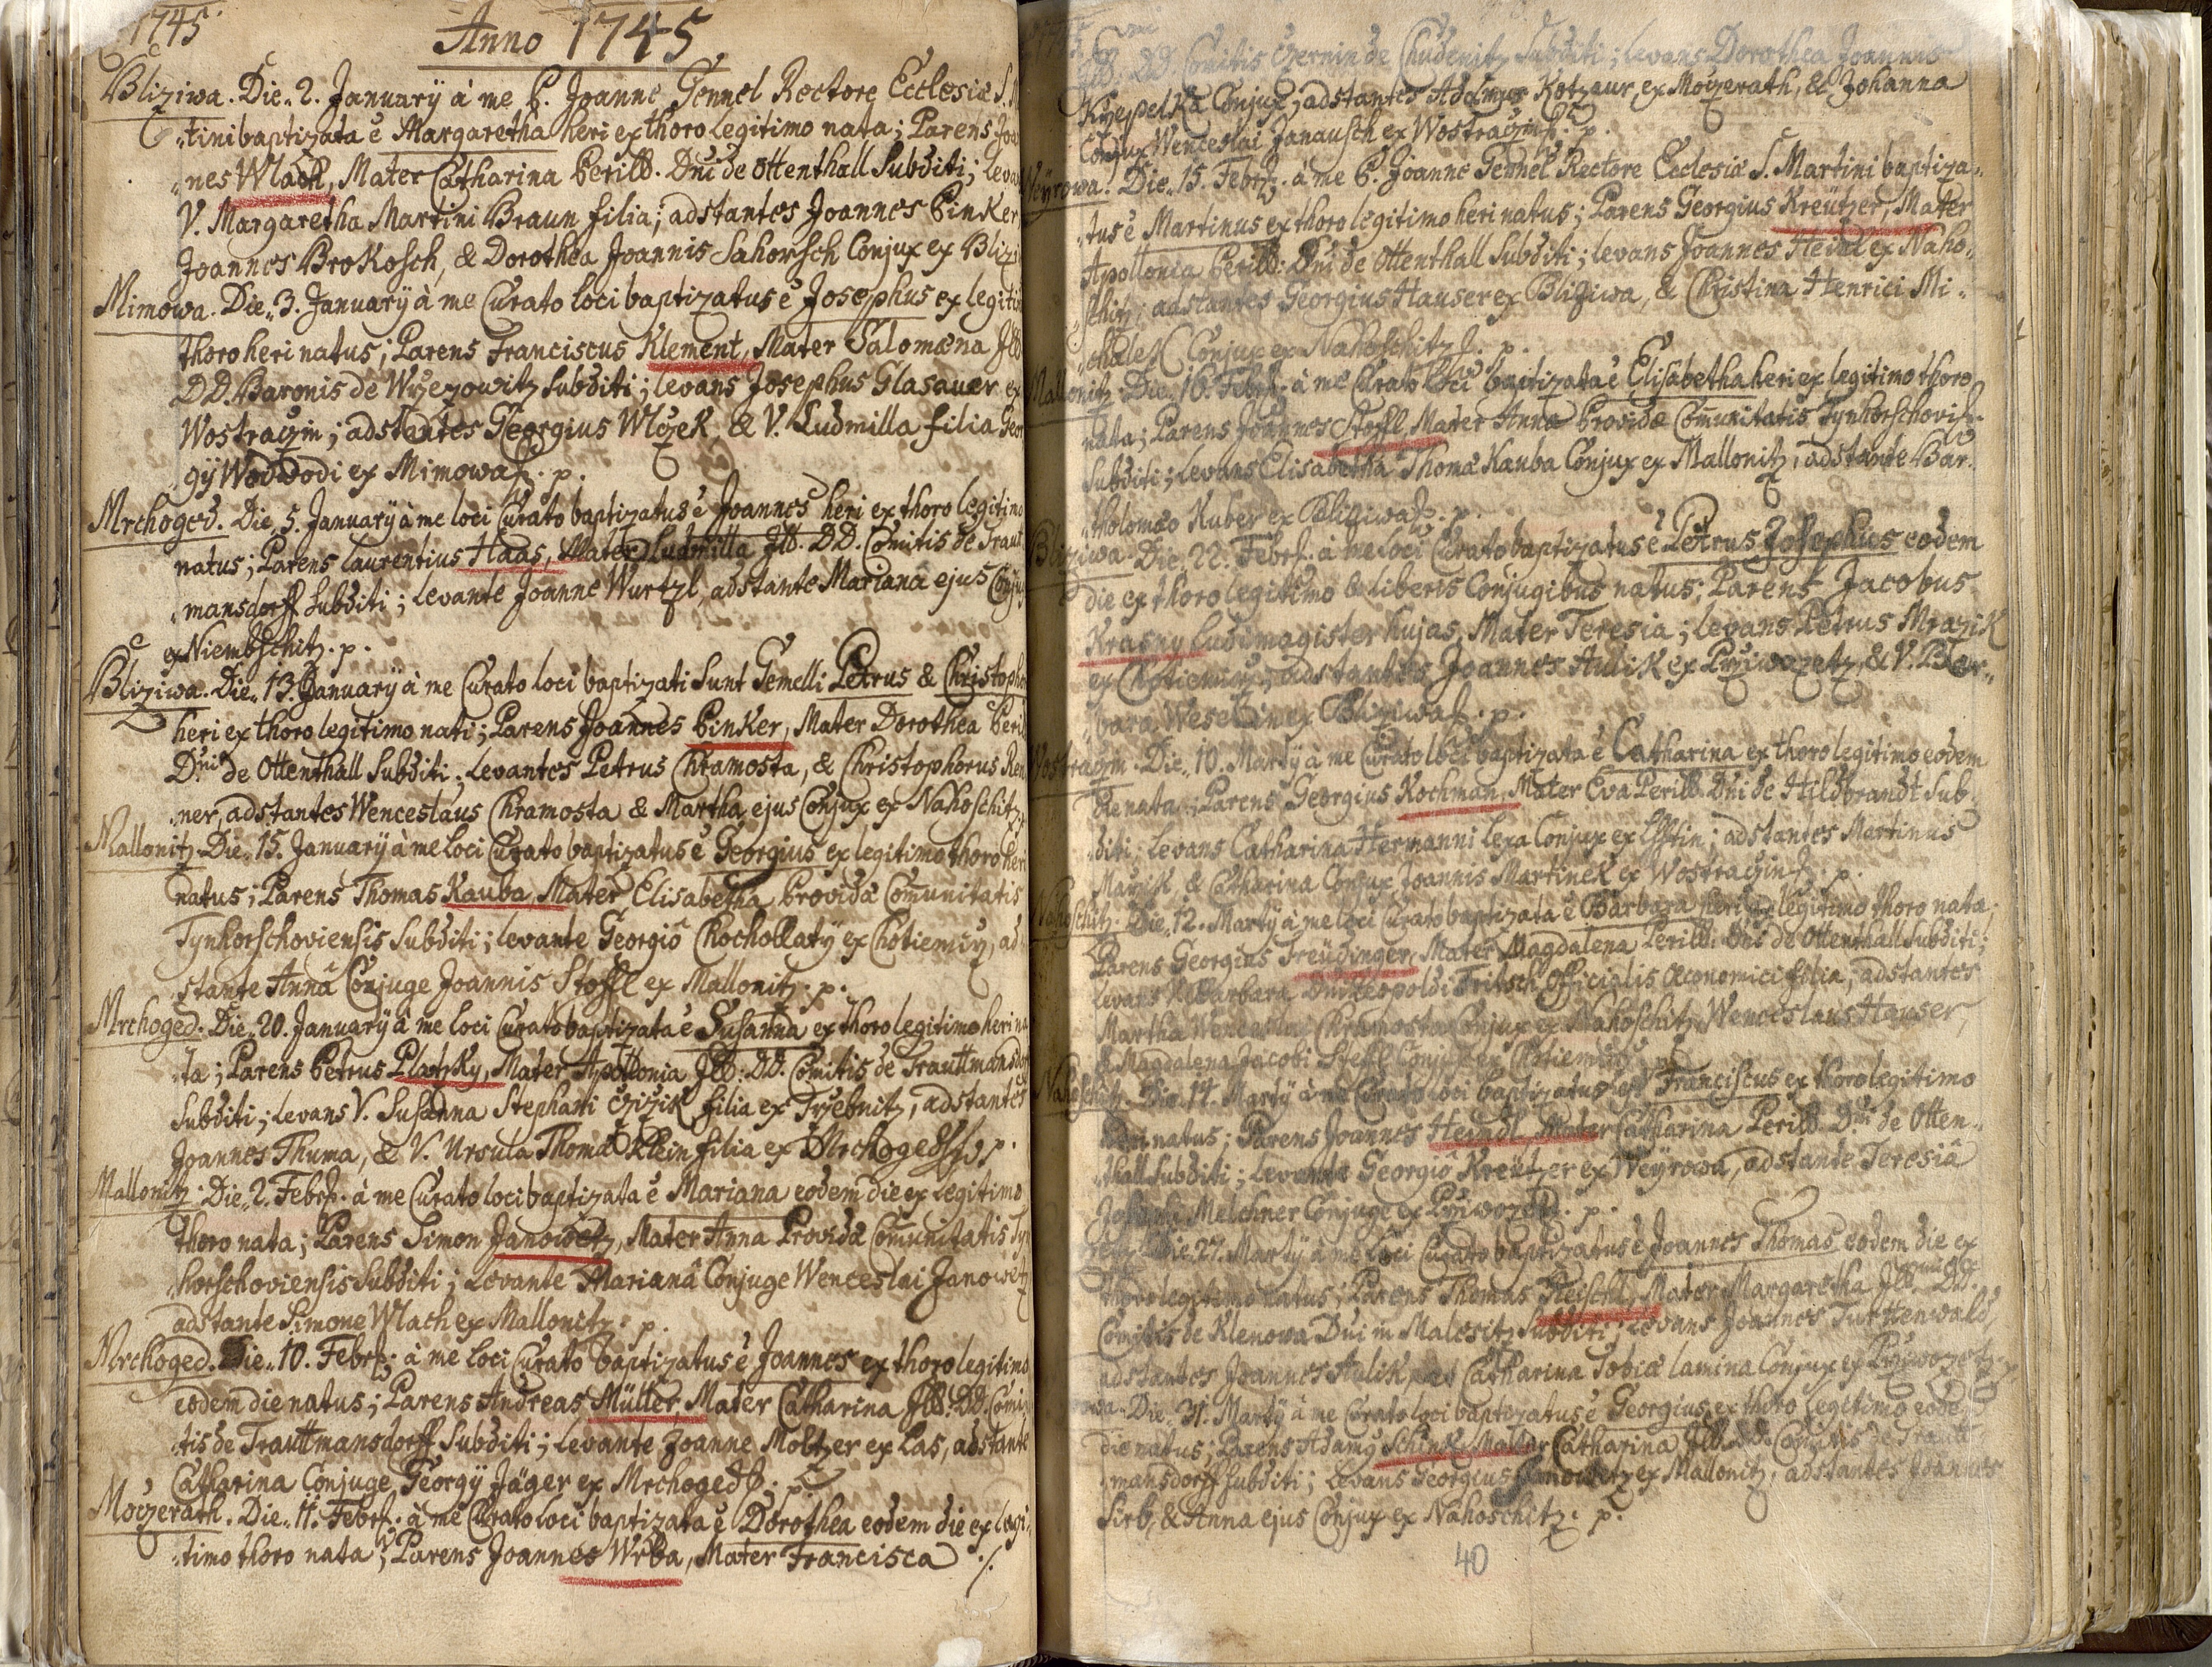 1745
Anno 1745
Bliziwa. Die 2. Januarÿ à me P. Joanne Gennel Rectore Ecclesiæ S. M
tini baptizata ē Margaretha heri ex thoro legitimo nata; Parens Joa
nes Wlach, Mater Catharina Perill. Dni de Ottenthall Subditi; leva
V. Margaretha Martini Braun filia; adstantes Joannes Pinker
Joannes Brokosch, & Dorothea Joannis Sahorsch Conjux ex Blizi
Mimowa. Die 3. Januarÿ à me Curato loci baptizatus ē Josephus ex legiti
thoro heri natus; Parens Franciscus Klement, Mater Salomæna Ill
DD. Baronis de Wrzezowitz Subditi; levans Josephus Glasauer ex
Wostraczin; adstantes Georgius Wlczek, & V. Ludmilla filia Geor
gÿ Wodwodi ex Mimowa. p.
Mrchoged. Die 5. Januarÿ à me loci Curato baptizatus ē Joannes heri ex thoro legitimo
natus; Parens Laurentius Haas, Mater Ludmilla Ill. DD. Comitis de Traut
mansdorff Subditi; levante Joanne Wurtzl, adstante Mariana ejus Conju
ex Niembschitz. p.
Bliziwa. Die 13. Januarÿ à me Curato loci baptizati Sunt Gemelli Petrus & Christoph
heri ex thoro legitimo nati; Parens Joannes Pinker, Mater Dorothea Peril
Dni de Ottenthall Subditi. Levantes Petrus Chramosta, & Christophorus Ren
ner, adstantes Wenceslaus Chramosta & Martha ejus Conjux ex Nahoschitz
Mallonitz. Die 15. Januarÿ à me loci Curato baptizatus ē Georgius ex legitimo thoro heri
natus; Parens Thomas Kauba, Mater Elisabetha Providæ Comunitatis
Tynhorschoviensis Subditi; levante Georgio Chochollatÿ ex Chotiemirz, ad
stante Anna Conjuge Joannis Stoffl ex Mallonitz. p.
Mrchoged. Die 20. Januarÿ à me loci Curato baptizata ē Susanna ex thoro legitimo heri na
ta; Parens Petrus Platzky, Mater Apollonia Ill. DD. Comitis de Trauttmansdor
Subditi; levans V. Susanna Stephani Czizik filia ex Trzebnitz, adstantes
Joannes Thuma, & V. Ursula Thomæ Klein filia ex Mrchoged. p.
Mallonitz. Die 2. Febr. à me Curato loci baptizata ē Mariana eodem die ex legitimo
thoro nata; Parens Simon Janowetz, Mater Anna Providæ Comunitatis Tyn
horschoviensis Subditi; Levante Mariana Conjuge Wenceslai Janowetz
adstante Simone Wlach ex Mallonitz. p.
Mrchoged. Die 10. Febr. à me loci Curato baptizatus ē Joannes ex thoro legitimo
eodem die natus; Parens Andreas Müller Mater Catharina Ill. DD. Comi
tis de Trauttmansdorff Subditi; levante Joanne Moltzer ex Las, adstante
Catharina Conjuge Georgÿ Jäger ex Mrchoged. p.
Moczerath. Die 11. Febr. à me Curato loci baptizata ē Dorothea eodem die ex legi
timo thoro nata; Parens Joannes Wrba, Mater Francisca ./.
Ill. DD. Comitis Czernin de Chudenitz Subditi; levans Dorothea Joannis
Krzepelka Conjux; adstantes Adalmus Kotzaur ex Moczerath, & Johanna
Conjux Wenceslai Janausch ex Wostraczin. p.
Weyrowa. Die 15. Febr. à me P. Joanne Gennel Rectore Ecclesiæ S. Martini baptiza
tus ē Martinus ex thoro legitimo heri natus; Parens Georgius Kreützer, Mater
Apollonia Perill. Dni de Ottenthall Subditi; levans Joannes Heidl ex Naho
schitz; adstantes Georgius Hauser ex Bliziwa, & Christina Henrici Mi
chalek Conjux ex Nahoschitz. p.
Mallonitz. Die 16. Febr. à me Curato loci baptizata ē Elisabetha heri ex legitimo thoro
nata; Parens Joannes Stoffl, Mater Anna Providæ Comunitatis Tynhorschovis
Subditi; levans Elisabetha Thomæ Kauba Conjux ex Mallonitz, adstante Bar
tholomæo Kuber ex Bliziwa. p.
Bliziwa. Die 22. Febr. à me loci Curato baptizatus ē Petrus Josephus eodem
die ex thoro legitimo & liberis Conjugibus natus; Parens Jacobus
Krasny Ludimagister hujas, Mater Teresia; levans Petrus Mrazik
ex Chotiemirz; adstantes Joannes Aulik ex Przivozetz & V. Bar
bara Weselin ex Bliziwa. p.
Wostraczin. Die 10. Martÿ à me Curato loci baptizata ē Catharina ex thoro legitimo eodem
die nata; Parens Georgius Kochman, Mater Eva Perill. Dni de Hildbrandt Sub
diti; levans Catharina Hermanni Lexa Conjux ex Elstin; adstantes Martinus
Mazik & Catharina Conjux Joannis Martinek ex Wostraczin. p.
Nahoschitz. Die 12. Martÿ à me loci Curato baptizata ē Barbara heri ex legitimo thoro nata;
Parens Georgius Freüdinger, Mater Magdalena Perill. Dni de Ottenthall Subditi;
levans V. Barbara Dni Leopoldi Fritsch Officialis Œconomici filia; adstantes
Martha Wenceslai Chramosta Conjux ex Nahoschitz, Wenceslaus Hauser,
& Magdalena Jacobi Steffl Conjux ex Chotiemirz. p.
Nahoschitz. Die 14. Martÿ à me Curato loci baptizatus est Franciscus ex thoro legitimo
heri natus; Parens Joannes Heindl, Mater Catharina Perill. Dni de Otten
thall Subditi; Levante Georgio Kreützer ex Weÿrowa, adstante Teresia
Josephi Melchner Conjuge ex Przivozetz. p.
Die 27. Martÿ à me loci Curato baptizatus ē Joannes Thomas eodem die ex
thoro legitimo natus; Parens Thomas Reischl, Mater Margaretha Ill. DD.
Comitis de Klenowa Dni in Malesitz Subditi; levans Joannes Turttenwald,
adstantes Joannes Aulik Catharina Tobiæ Lamina Conjux ex Przivozetz
Die 31. Martÿ à me Curato loci baptizatus ē Georgius ex thoro legitimo eode
die natus; Parens Adamus Schink, Mater Catharina Ill. DD. Comitis de Trautt
mansdorff Subditi; levans Georgius Janowetz ex Mallonitz, adstantes Joannes
Sirb, & Anna ejus Conjux ex Nahoschitz. p.
40